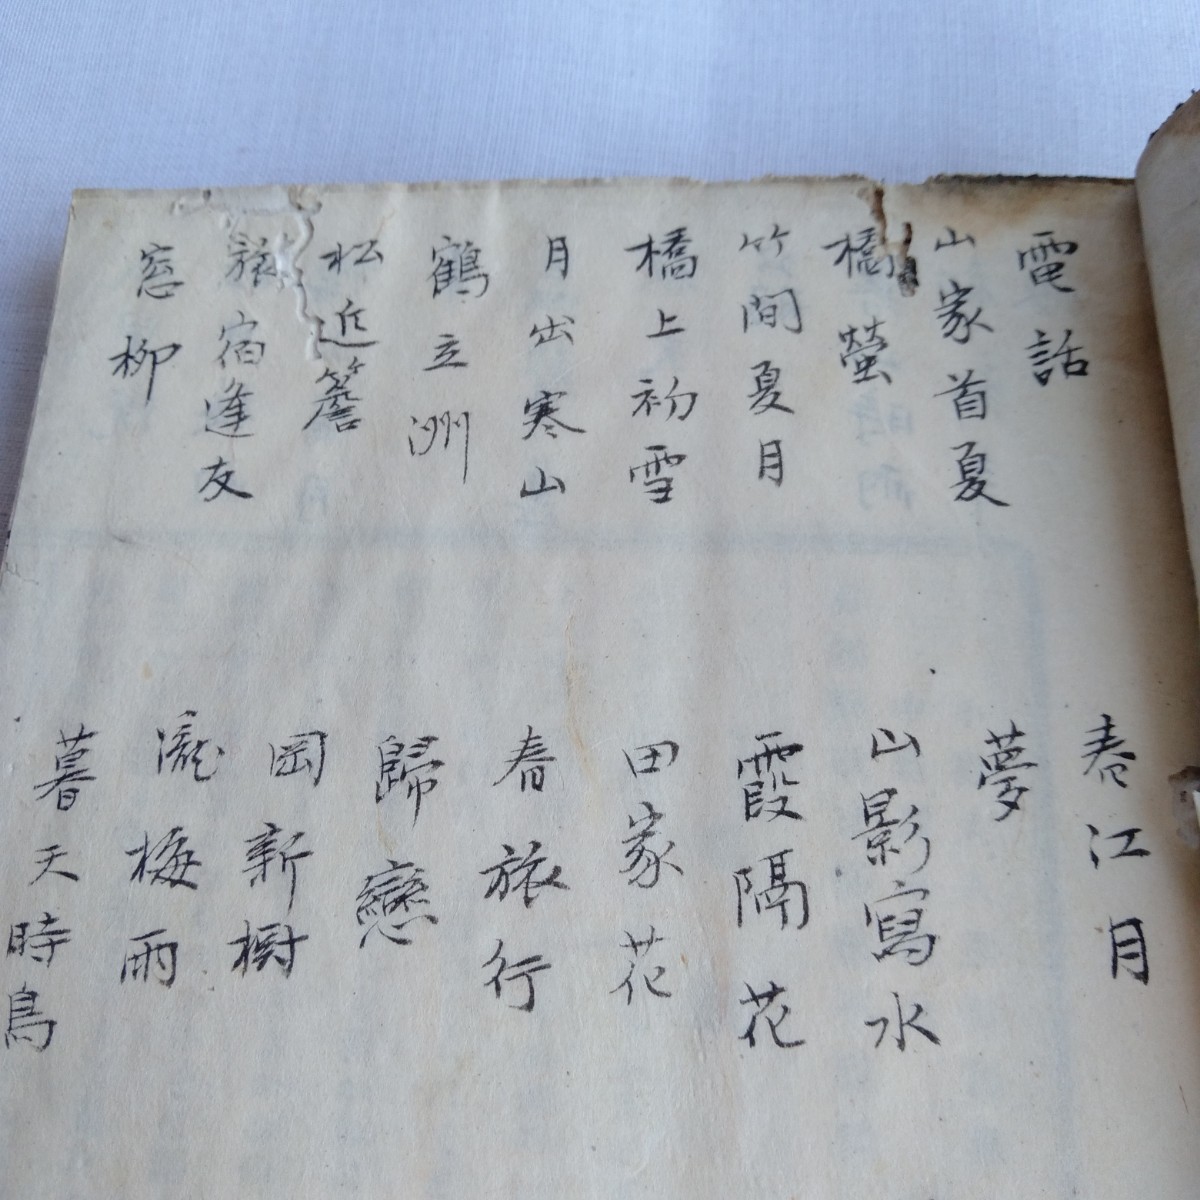 電話
山家首夏
橋螢
竹間夏月
橋上初雪
月出寒山
鶴立洲
松近簷
旅宿逢友
窓柳
春江月
夢
山影寫水
霞隔花
田家花
春旅行
歸戀
岡新樹
瀧梅雨
暮天時鳥